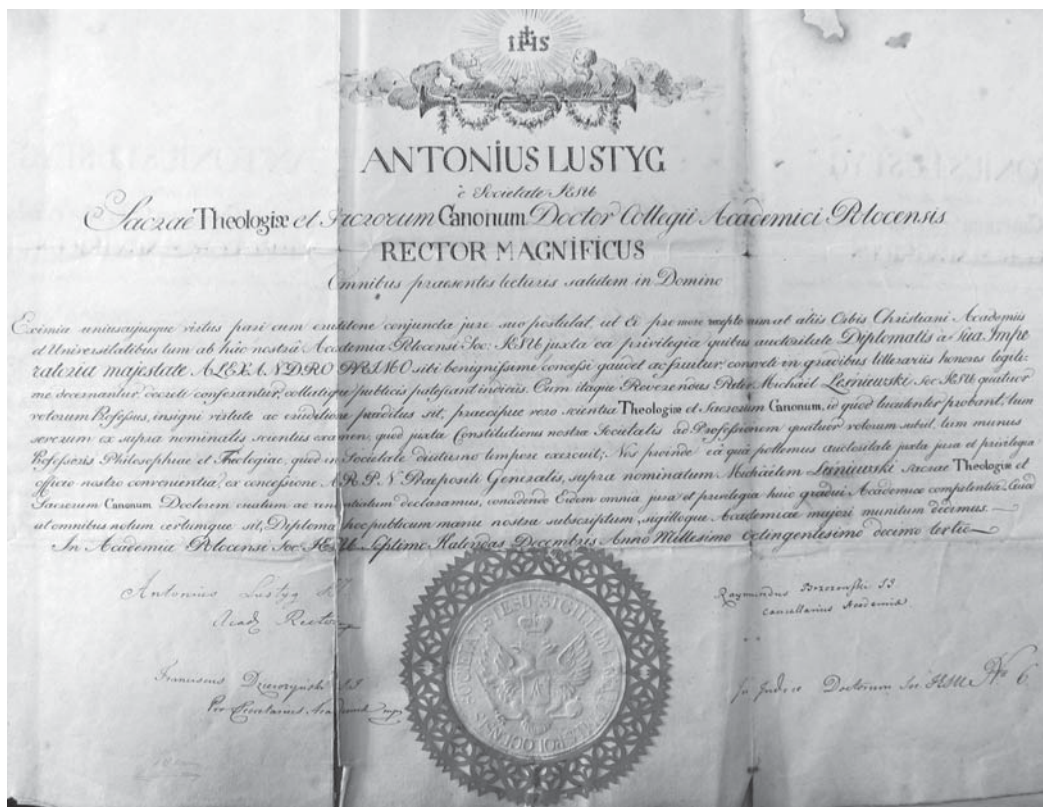 IHS
ANTONIUS LUSTYG
è Societate JESU
Sacrae Theologiæ et Sacrorum Canonum Doctor Collegii Academici Polocensis
RECTOR MAGNIFICUS
Omnibus praesentes lecturis salutem in Domino
Eximia uniuscujusque virtus pari cum eruditione conjuncta jure suo postulat, ut Ei pro more recepto tum ab aliis Orbis Christiani Academiis
et Universitatibus tum ab hâc nostrâ Academia Polocensi Soc: JESU juxta ea privilegia quibus auctoritate Diplomatis a Sua Impe
ratoria majestate ALEXANDRO PRIMO sibi benignissime concessi gaudet ac fruitur, consveti in gradibus litterariis honores legiti-
me decernantur, decreti conferantur, collatique publicis patefiant indiciis. Cum itaque Reverendus Pater Michaël Leśniewski Soc JESU quatuor
votorum Professus, insigni virtute ac eruditione praeditus sit, praecipue vero scientia Theologiæ et Sacrorum Canonum, id quod luculenter probant, tum
severum ex supra nominatis scientiis examen, quod juxta Constitutiones nostra Societatis ad Professionem quatuor votorum subiit, tum munus
Professoris Philosophiae et Theologiae, quod in Societate diuturno tempore exercuit; Nos proinde eâ quâ pollemus auctoritate juxta jura et privilegia
officio nostro convenientia, ex concessione A. R. P. N. Praepositi Generalis, supra nominatum Michaëlem Leśniewski Sacrae Theologiæ et
Sacrorum Canonum Doctorem creatum ac renuntiatum declaramus, concedendo Eidem omnia jura et privilegia huic gradui Academico competentia. Quod
ut omnibus notum certumque sit, Diploma hoc publicum manu nostra subscriptum, sigilloque Academiae majori munitum dedimus.
In Academia Polocensi Soc JESU Septimo Kalendas Decembris Anno Millesimo Octingentesimo decimo tertio
Antonius Lustyg SJ
Acad Rector
Raymundus Brzozowski SJ
Cancellarius Academiæ
Franciscus Dzierożyński SJ
Pro Secretarius Academiæ mpr
In Indice Doctorum Soc JESU No 6
SOCIETATIS IESU SIGILLUM ACADEMIAE POLOCENSIS